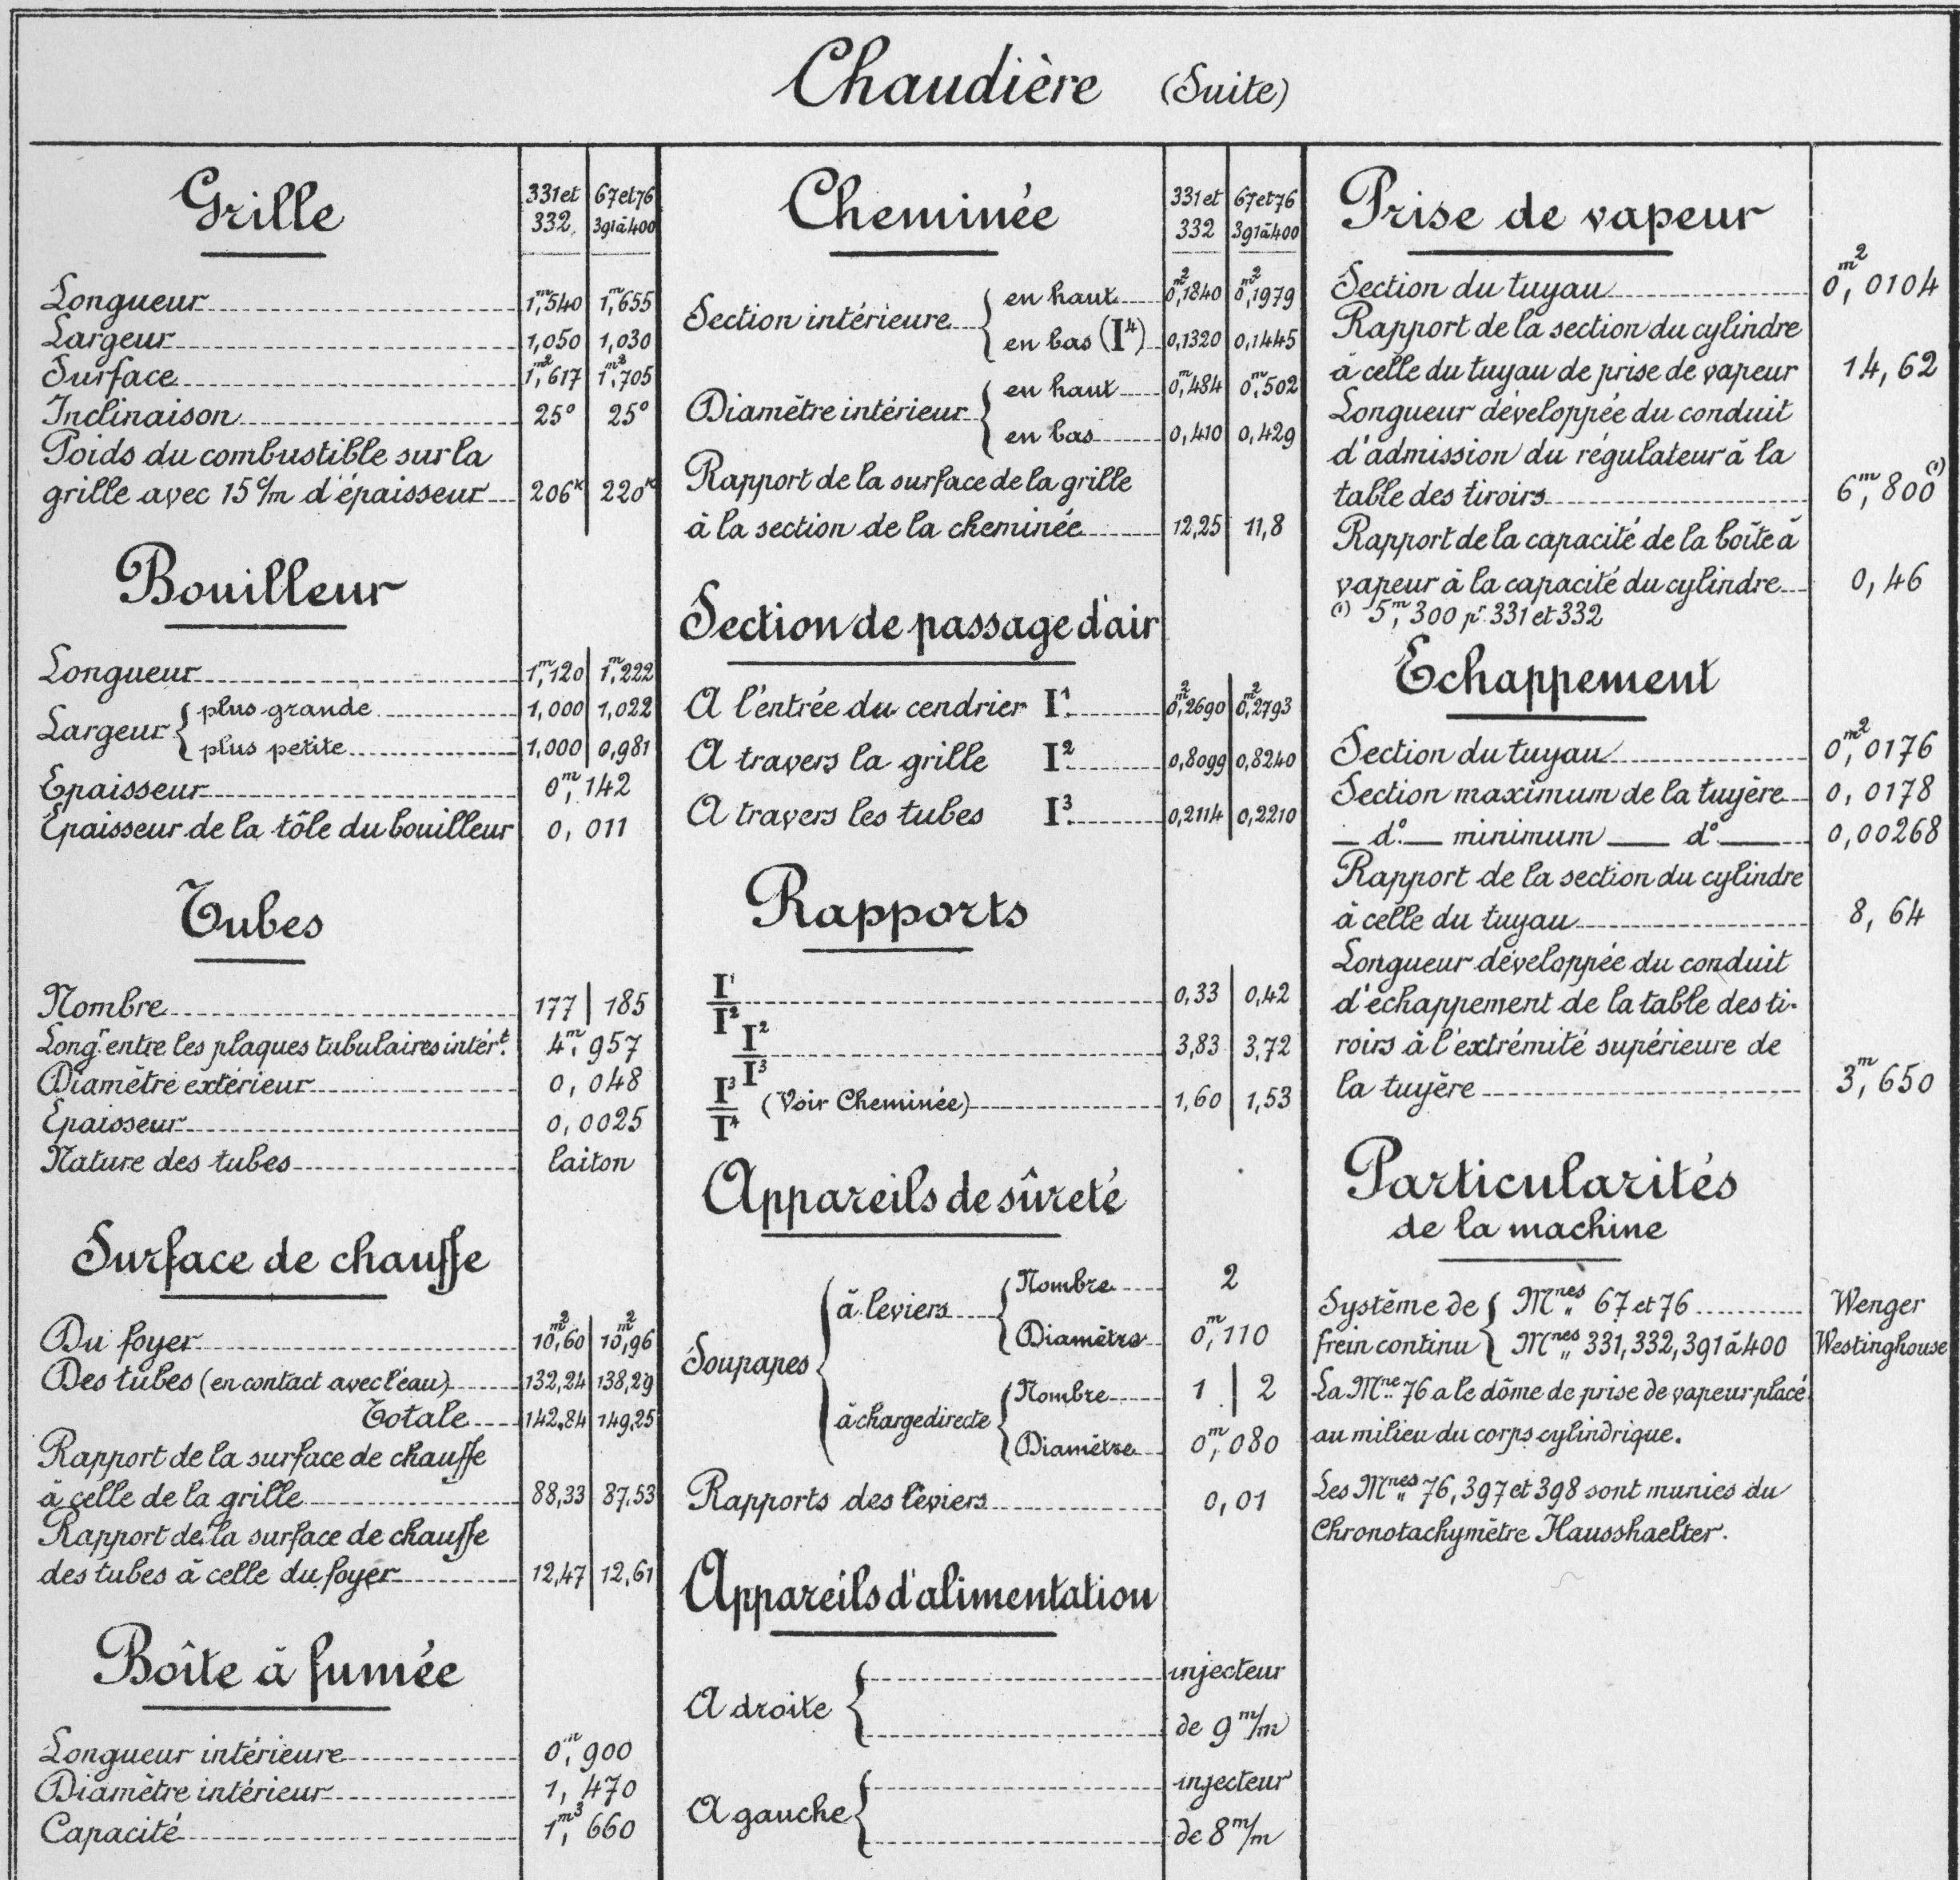 Chaudière (Suite)
Grille
331 et 332 | 67 et 76 391 à 400
Longueur 1,ᵐ540 | 1,ᵐ655
Largeur 1,050 | 1,030
Surface 1,ᵐ²617 | 1,ᵐ²705
Inclinaison 25° | 25°
Poids du combustible sur la
grille avec 15 c/m d'épaisseur 206ᵏ | 220ᵏ
Bouilleur
Longueur 1,ᵐ120 | 1,ᵐ222
Largeur { plus grande 1,000 | 1,022
plus petite 1,000 | 0,981
Epaisseur 0,ᵐ142
Epaisseur de la tôle du bouilleur 0,011
Tubes
Nombre 177 | 185
Longʳ entre les plaques tubulaires intérᵗ 4,ᵐ957
Diamètre extérieur 0,048
Epaisseur 0,0025
Nature des tubes laiton
Surface de chauffe
Du foyer 10,ᵐ²60 | 10,ᵐ²96
Des tubes (en contact avec l'eau) 132,24 | 138,29
Totale 142,84 | 149,25
Rapport de la surface de chauffe
à celle de la grille 88,33 | 87,53
Rapport de la surface de chauffe
des tubes à celle du foyer 12,47 | 12,61
Boîte à fumée
Longueur intérieure 0,ᵐ900
Diamètre intérieur 1,470
Capacité 1,ᵐ³660
Cheminée
331 et 332 | 67 et 76 391 à 400
Section intérieure { en haut 0,ᵐ²1840 | 0,ᵐ²1979
en bas (I⁴) 0,1320 | 0,1445
Diamètre intérieur { en haut 0,ᵐ484 | 0,ᵐ502
en bas 0,410 | 0,429
Rapport de la surface de la grille
à la section de la cheminée 12,25 | 11,8
Section de passage d'air
A l'entrée du cendrier I¹ 0,ᵐ²2690 | 0,ᵐ²2793
A travers la grille I² 0,8099 | 0,8240
A travers les tubes I³ 0,2114 | 0,2210
Rapports
I¹/I² 0,33 | 0,42
I²/I³ 3,83 | 3,72
I³/I⁴ (Voir Cheminée) 1,60 | 1,53
Appareils de sûreté
Soupapes { à leviers { Nombre 2
Diamètre 0,ᵐ110
à charge directe { Nombre 1 | 2
Diamètre 0,ᵐ080
Rapports des léviers 0,01
Appareils d'alimentation
A droite { injecteur
de 9 m/m
A gauche { injecteur
de 8 m/m
Prise de vapeur
Section du tuyau 0,ᵐ²0104
Rapport de la section du cylindre
à celle du tuyau de prise de vapeur 14,62
Longueur développée du conduit
d'admission du régulateur à la
table des tiroirs 6,ᵐ800⁽¹⁾
Rapport de la capacité de la boîte à
vapeur à la capacité du cylindre 0,46
(1) 5,ᵐ300 pʳ 331 et 332
Echappement
Section du tuyau 0,ᵐ²0176
Section maximum de la tuyère 0,0178
— d° — minimum — d° — 0,00268
Rapport de la section du cylindre
à celle du tuyau 8,64
Longueur développée du conduit
d'échappement de la table des ti-
roirs à l'extrémité supérieure de
la tuyère 3,ᵐ650
Particularités
de la machine
Système de { Mⁿᵉˢ 67 et 76 Wenger
frein continu { Mⁿᵉˢ 331, 332, 391 à 400 Westinghouse
La Mⁿᵉ 76 a le dôme de prise de vapeur placé
au milieu du corps cylindrique.
Les Mⁿᵉˢ 76, 397 et 398 sont munies du
Chronotachymètre Hausshaelter.